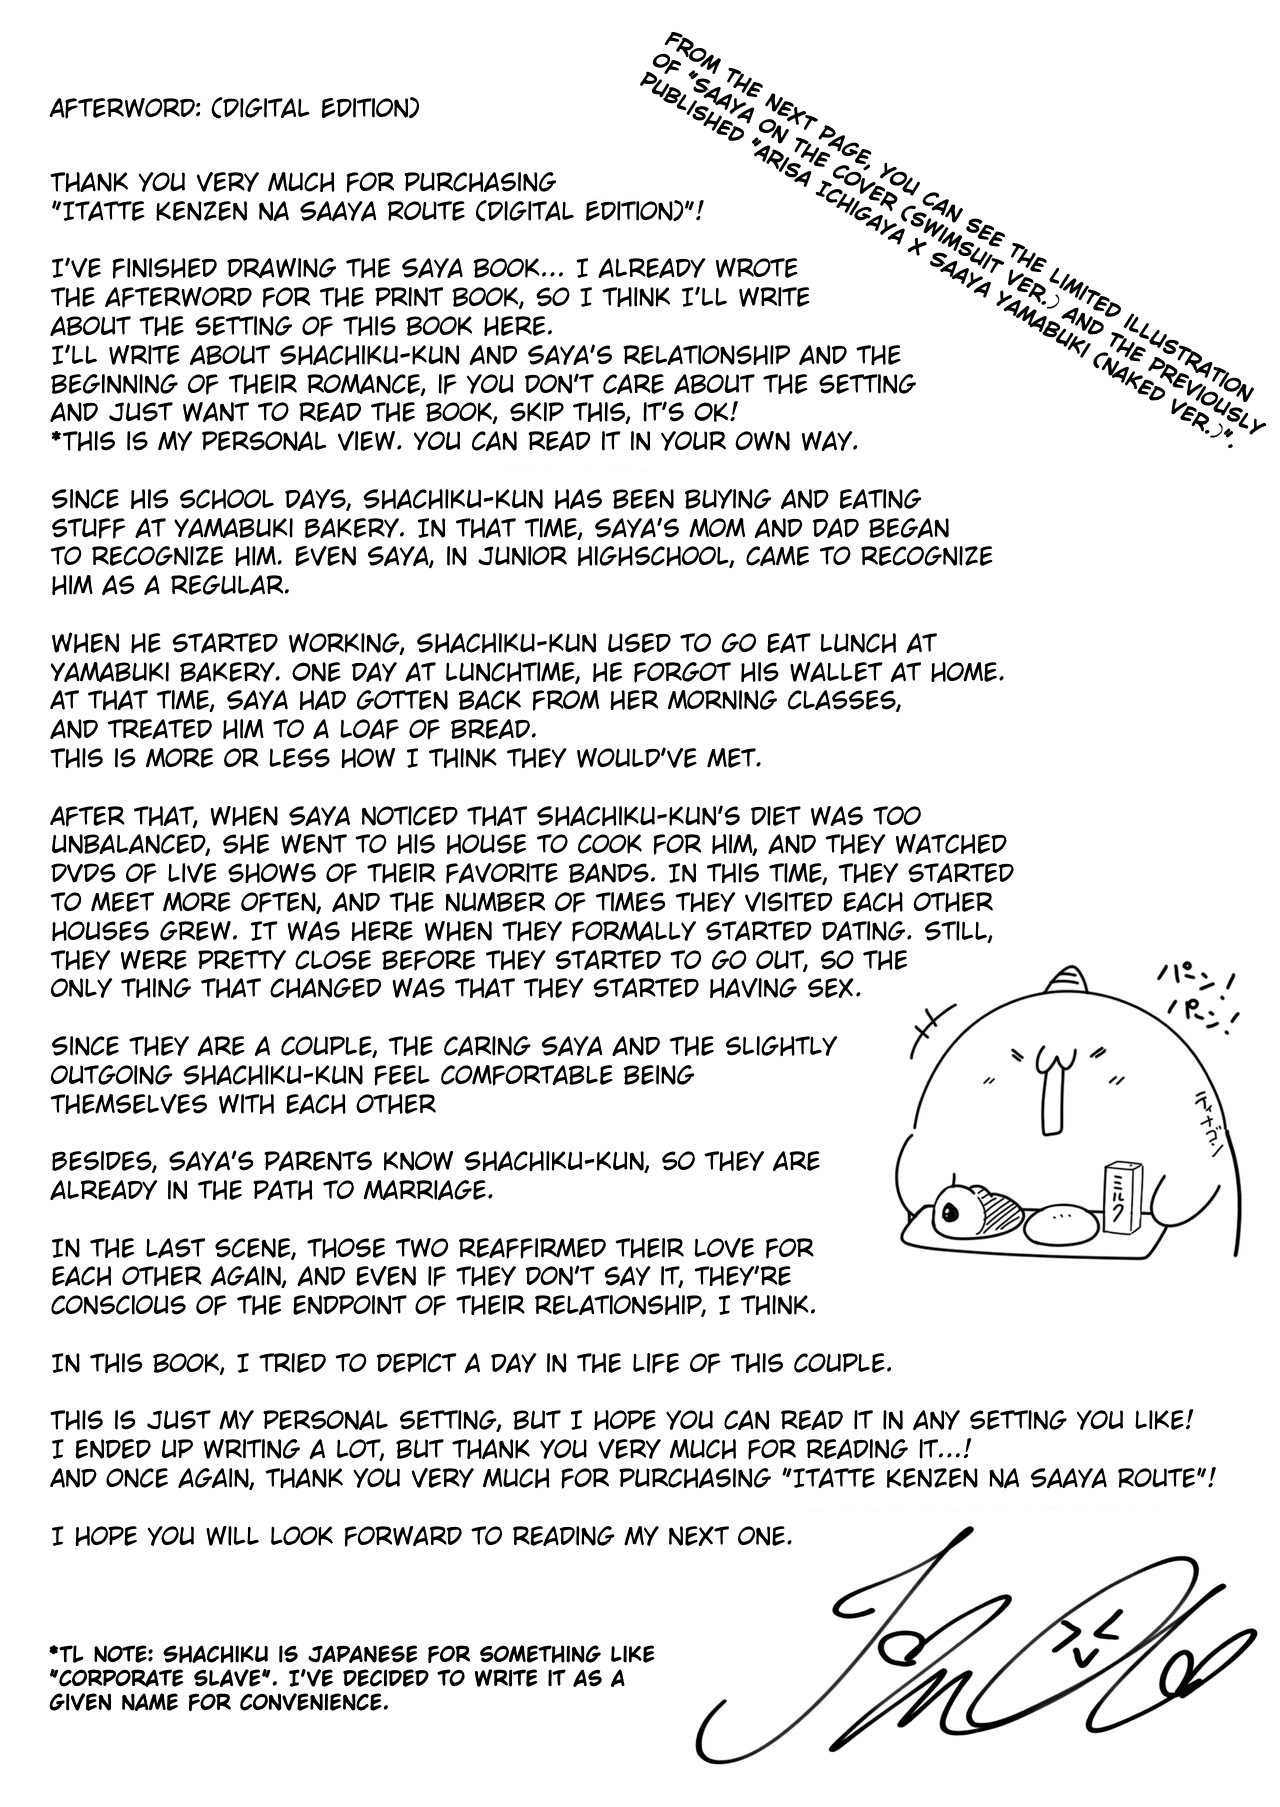 AFTERWORD: (DIGITAL EDITION)
FROM THE NEXT PAGE, YOU CAN SEE THE LIMITED ILLUSTRATION
OF "SAAYA ON THE COVER (SWIMSUIT VER.) AND THE PREVIOUSLY
PUBLISHED "ARISA ICHIGAYA X SAAYA YAMABUKI (NAKED VER.)".
THANK YOU VERY MUCH FOR PURCHASING
"ITATTE KENZEN NA SAAYA ROUTE (DIGITAL EDITION)"!
I'VE FINISHED DRAWING THE SAYA BOOK... I ALREADY WROTE
THE AFTERWORD FOR THE PRINT BOOK, SO I THINK I'LL WRITE
ABOUT THE SETTING OF THIS BOOK HERE.
I'LL WRITE ABOUT SHACHIKU-KUN AND SAYA'S RELATIONSHIP AND THE
BEGINNING OF THEIR ROMANCE, IF YOU DON'T CARE ABOUT THE SETTING
AND JUST WANT TO READ THE BOOK, SKIP THIS, IT'S OK!
*THIS IS MY PERSONAL VIEW. YOU CAN READ IT IN YOUR OWN WAY.
SINCE HIS SCHOOL DAYS, SHACHIKU-KUN HAS BEEN BUYING AND EATING
STUFF AT YAMABUKI BAKERY. IN THAT TIME, SAYA'S MOM AND DAD BEGAN
TO RECOGNIZE HIM. EVEN SAYA, IN JUNIOR HIGHSCHOOL, CAME TO RECOGNIZE
HIM AS A REGULAR.
WHEN HE STARTED WORKING, SHACHIKU-KUN USED TO GO EAT LUNCH AT
YAMABUKI BAKERY. ONE DAY AT LUNCHTIME, HE FORGOT HIS WALLET AT HOME.
AT THAT TIME, SAYA HAD GOTTEN BACK FROM HER MORNING CLASSES,
AND TREATED HIM TO A LOAF OF BREAD.
THIS IS MORE OR LESS HOW I THINK THEY WOULD'VE MET.
AFTER THAT, WHEN SAYA NOTICED THAT SHACHIKU-KUN'S DIET WAS TOO
UNBALANCED, SHE WENT TO HIS HOUSE TO COOK FOR HIM, AND THEY WATCHED
DVDS OF LIVE SHOWS OF THEIR FAVORITE BANDS. IN THIS TIME, THEY STARTED
TO MEET MORE OFTEN, AND THE NUMBER OF TIMES THEY VISITED EACH OTHER
HOUSES GREW. IT WAS HERE WHEN THEY FORMALLY STARTED DATING. STILL,
THEY WERE PRETTY CLOSE BEFORE THEY STARTED TO GO OUT, SO THE
ONLY THING THAT CHANGED WAS THAT THEY STARTED HAVING SEX.
SINCE THEY ARE A COUPLE, THE CARING SAYA AND THE SLIGHTLY
OUTGOING SHACHIKU-KUN FEEL COMFORTABLE BEING
THEMSELVES WITH EACH OTHER
BESIDES, SAYA'S PARENTS KNOW SHACHIKU-KUN, SO THEY ARE
ALREADY IN THE PATH TO MARRIAGE.
IN THE LAST SCENE, THOSE TWO REAFFIRMED THEIR LOVE FOR
EACH OTHER AGAIN, AND EVEN IF THEY DON'T SAY IT, THEY'RE
CONSCIOUS OF THE ENDPOINT OF THEIR RELATIONSHIP, I THINK.
パーン!
パーン!
ディナゴン
ミルク
IN THIS BOOK, I TRIED TO DEPICT A DAY IN THE LIFE OF THIS COUPLE.
THIS IS JUST MY PERSONAL SETTING, BUT I HOPE YOU CAN READ IT IN ANY SETTING YOU LIKE!
I ENDED UP WRITING A LOT, BUT THANK YOU VERY MUCH FOR READING IT...!
AND ONCE AGAIN, THANK YOU VERY MUCH FOR PURCHASING "ITATTE KENZEN NA SAAYA ROUTE"!
I HOPE YOU WILL LOOK FORWARD TO READING MY NEXT ONE.
*TL NOTE: SHACHIKU IS JAPANESE FOR SOMETHING LIKE
"CORPORATE SLAVE". I'VE DECIDED TO WRITE IT AS A
GIVEN NAME FOR CONVENIENCE.